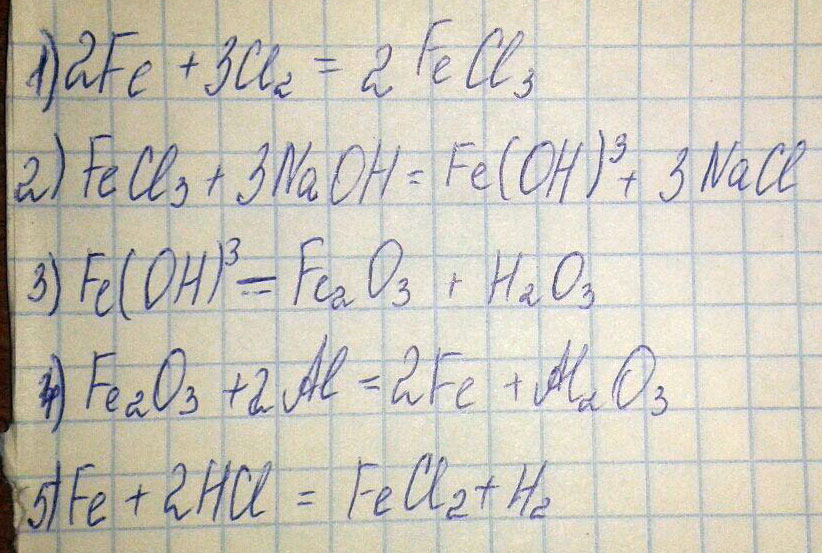 1) 2Fe + 3Cl₂ = 2FeCl₃
2) FeCl₃ + 3NaOH = Fe(OH)³ + 3NaCl
3) Fe(OH)³ = Fe₂O₃ + H₂O₃
4) Fe₂O₃ + 2Al = 2Fe + Al₂O₃
5) Fe + 2HCl = FeCl₂ + H₂